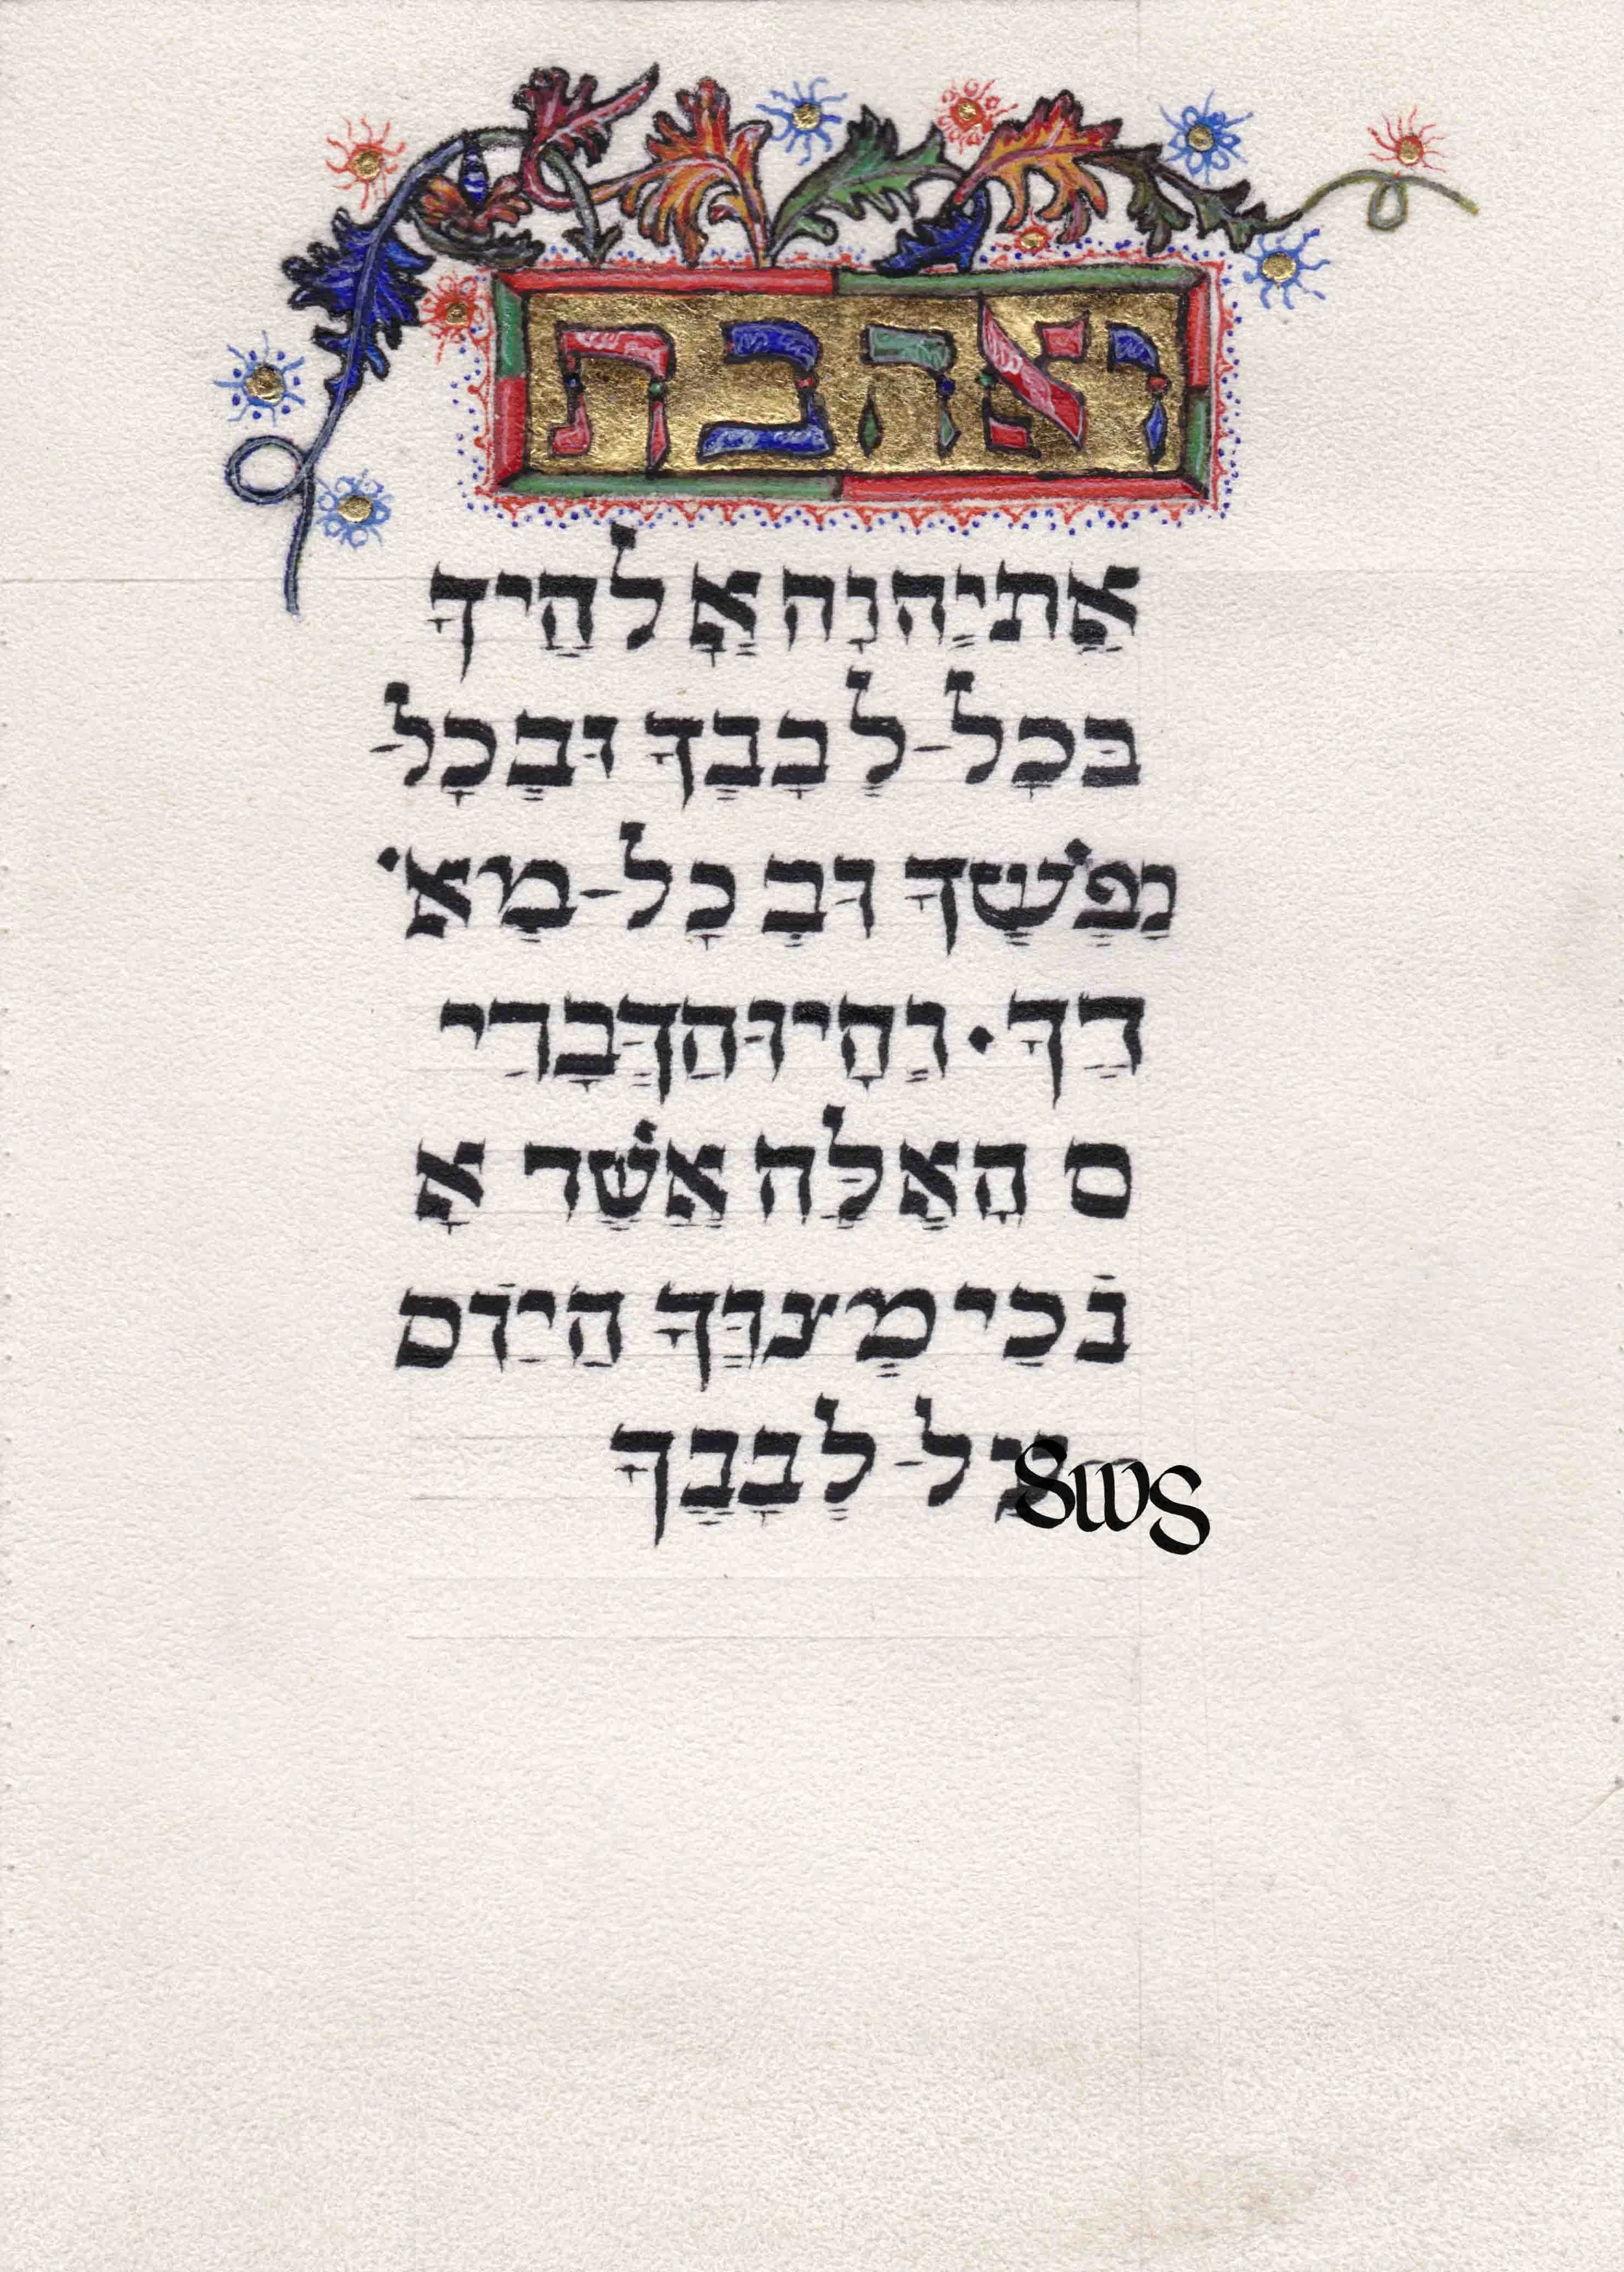 ואהבת
אֵתיְהוָה אֱלֹהֶיךָ
בּכָל-לְבָבְךָ וּבְכָל-
נַפְשְׁךָ וּבְ כָל-מְא
דֶךָ. וְהָיוּהַדְּבָרִי
ם הָאֵלֶּה אֲשֶׁר אָ
נֹכִי מְצַוְּךָ הַיּוֹם
עַל-לְבָבֶךָ
SWS